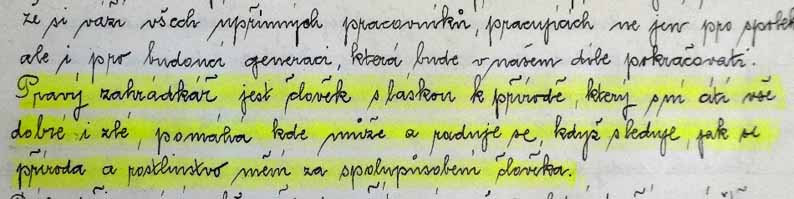 že si váží všech upřímných pracovníků, pracujících ne jen pro spolek
ale i pro budoucí generaci, která bude v našem díle pokračovati.
Pravý zahrádkář jest člověk s láskou k přírodě, který smí čísti vše
dobré i zlé, pomáhá kde může a raduje se, když sleduje, jak se
příroda a rostlinstvo mění za spolupůsobení člověka.